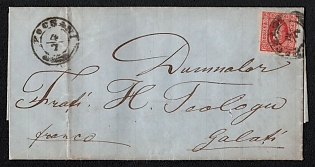 FOCSANI
Dumnalor
Frati H. Teologu
franco
Galați